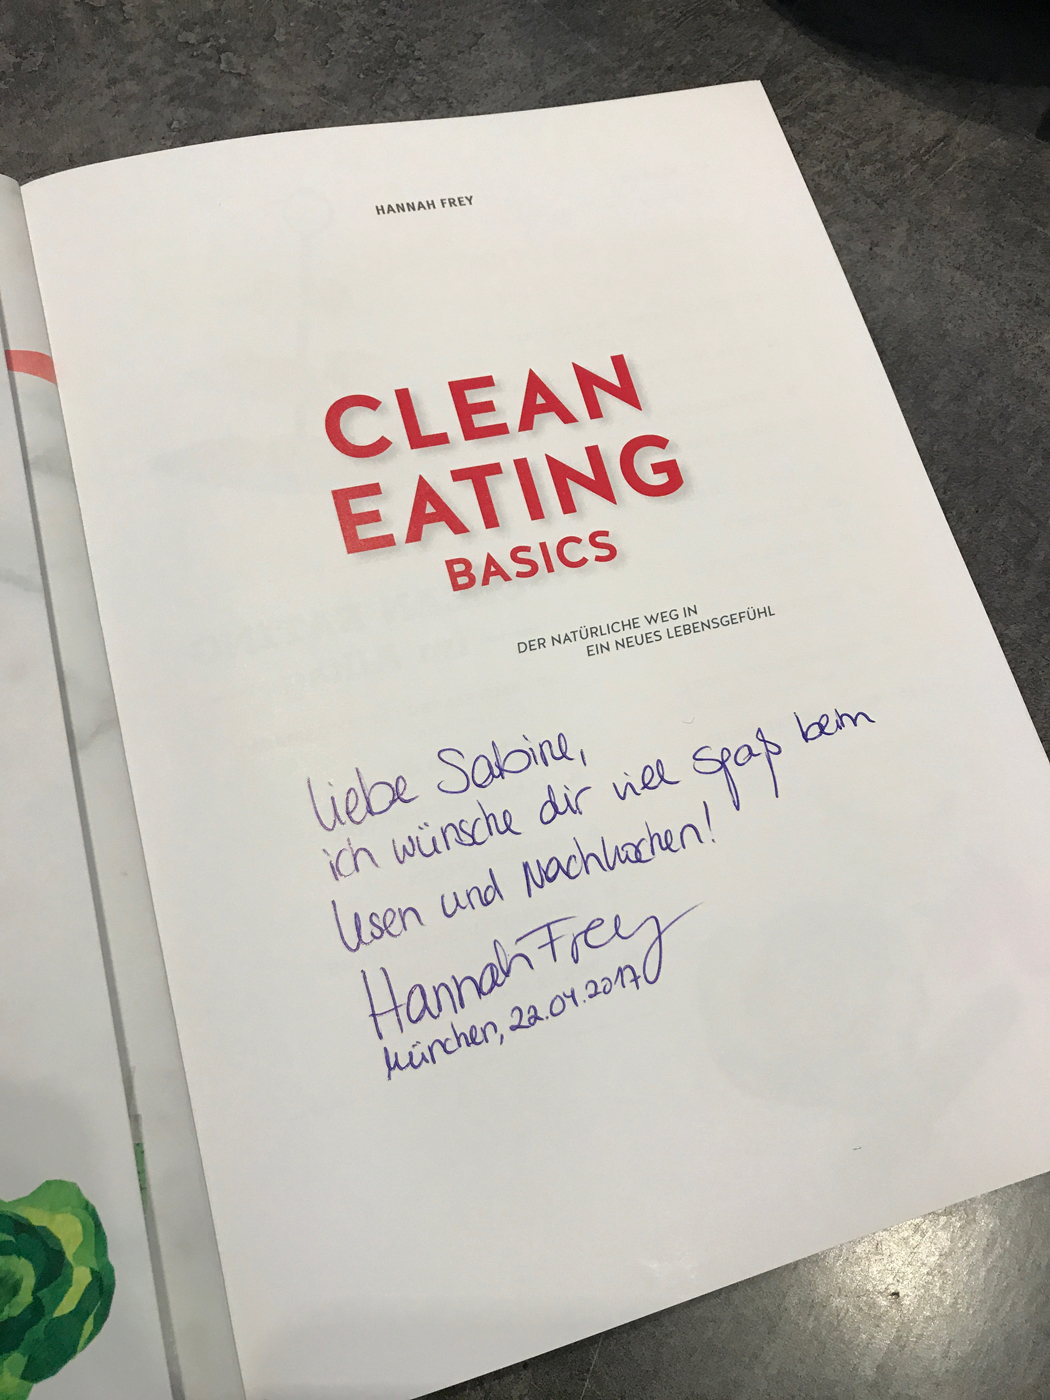 HANNAH FREY
CLEAN
EATING
BASICS
DER NATÜRLICHE WEG IN
EIN NEUES LEBENSGEFÜHL
Liebe Sabine,
ich wünsche dir viel Spaß beim
Lesen und Nachkochen!
Hannah Frey
München, 22.04.2017